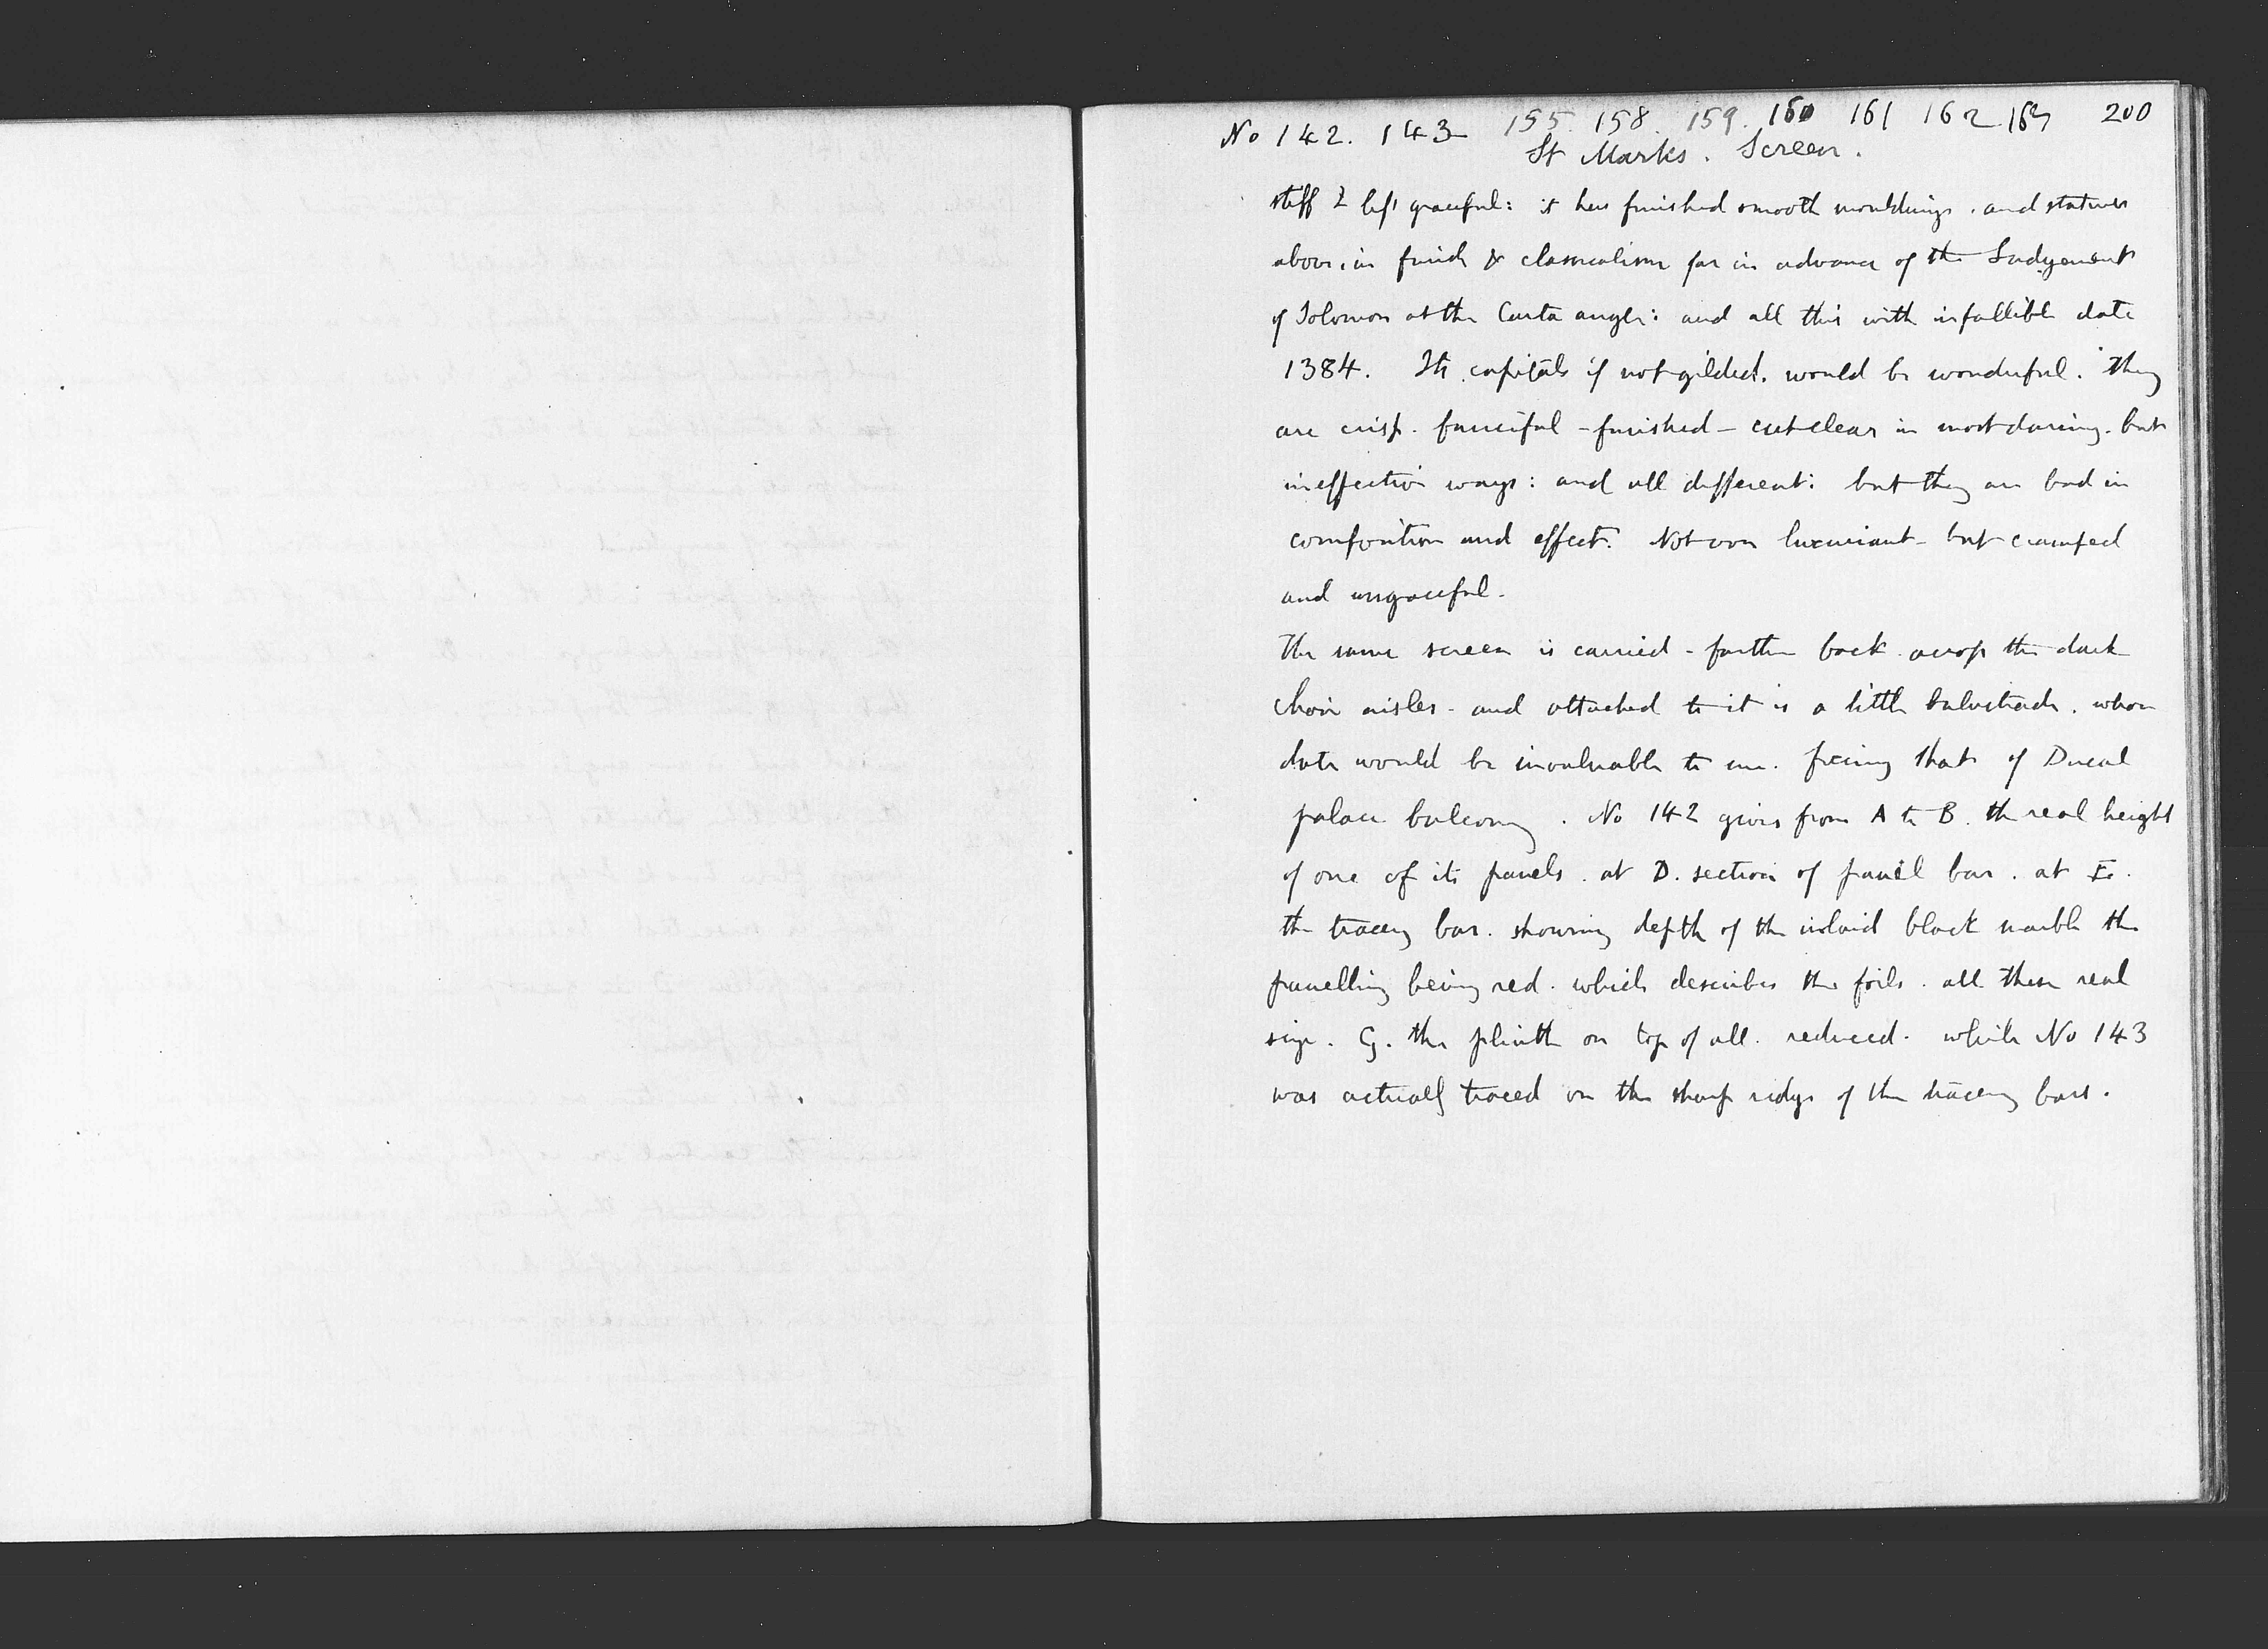 No 142. 143 155. 158. 159. 160 161 162 163 200
St Marks. Screen.
stiff & less graceful: it has finished smooth mouldings. and statues
above, in finish & classicalism far in advance of the Judgement
of Solomon at the Carta angle: and all this with infallible date
1394. Its capitals if not gilded. would be wonderful. They
are crisp. fanciful - finished - cut clear in most daring. but
ineffective ways: and all different: but they are bad in
composition and effect. Not over luxuriant - but cramped
and ungraceful.
The same screen is carried - farther back across the dark
choir aisles - and attached to it is a little balustrade. whose
date would be invaluable to me. fixing that of Ducal
palace balcony. No 142 gives from A to B. the real height
of one of its panels. at D. section of panel bar. at E.
the tracery bar. showing depth of the inlaid black marble the
panelling being red. which describes the foils. all these real
size. G. the plinth on top of all. reduced. while No 143
was actually traced on the sharp ridge of the tracery bars.